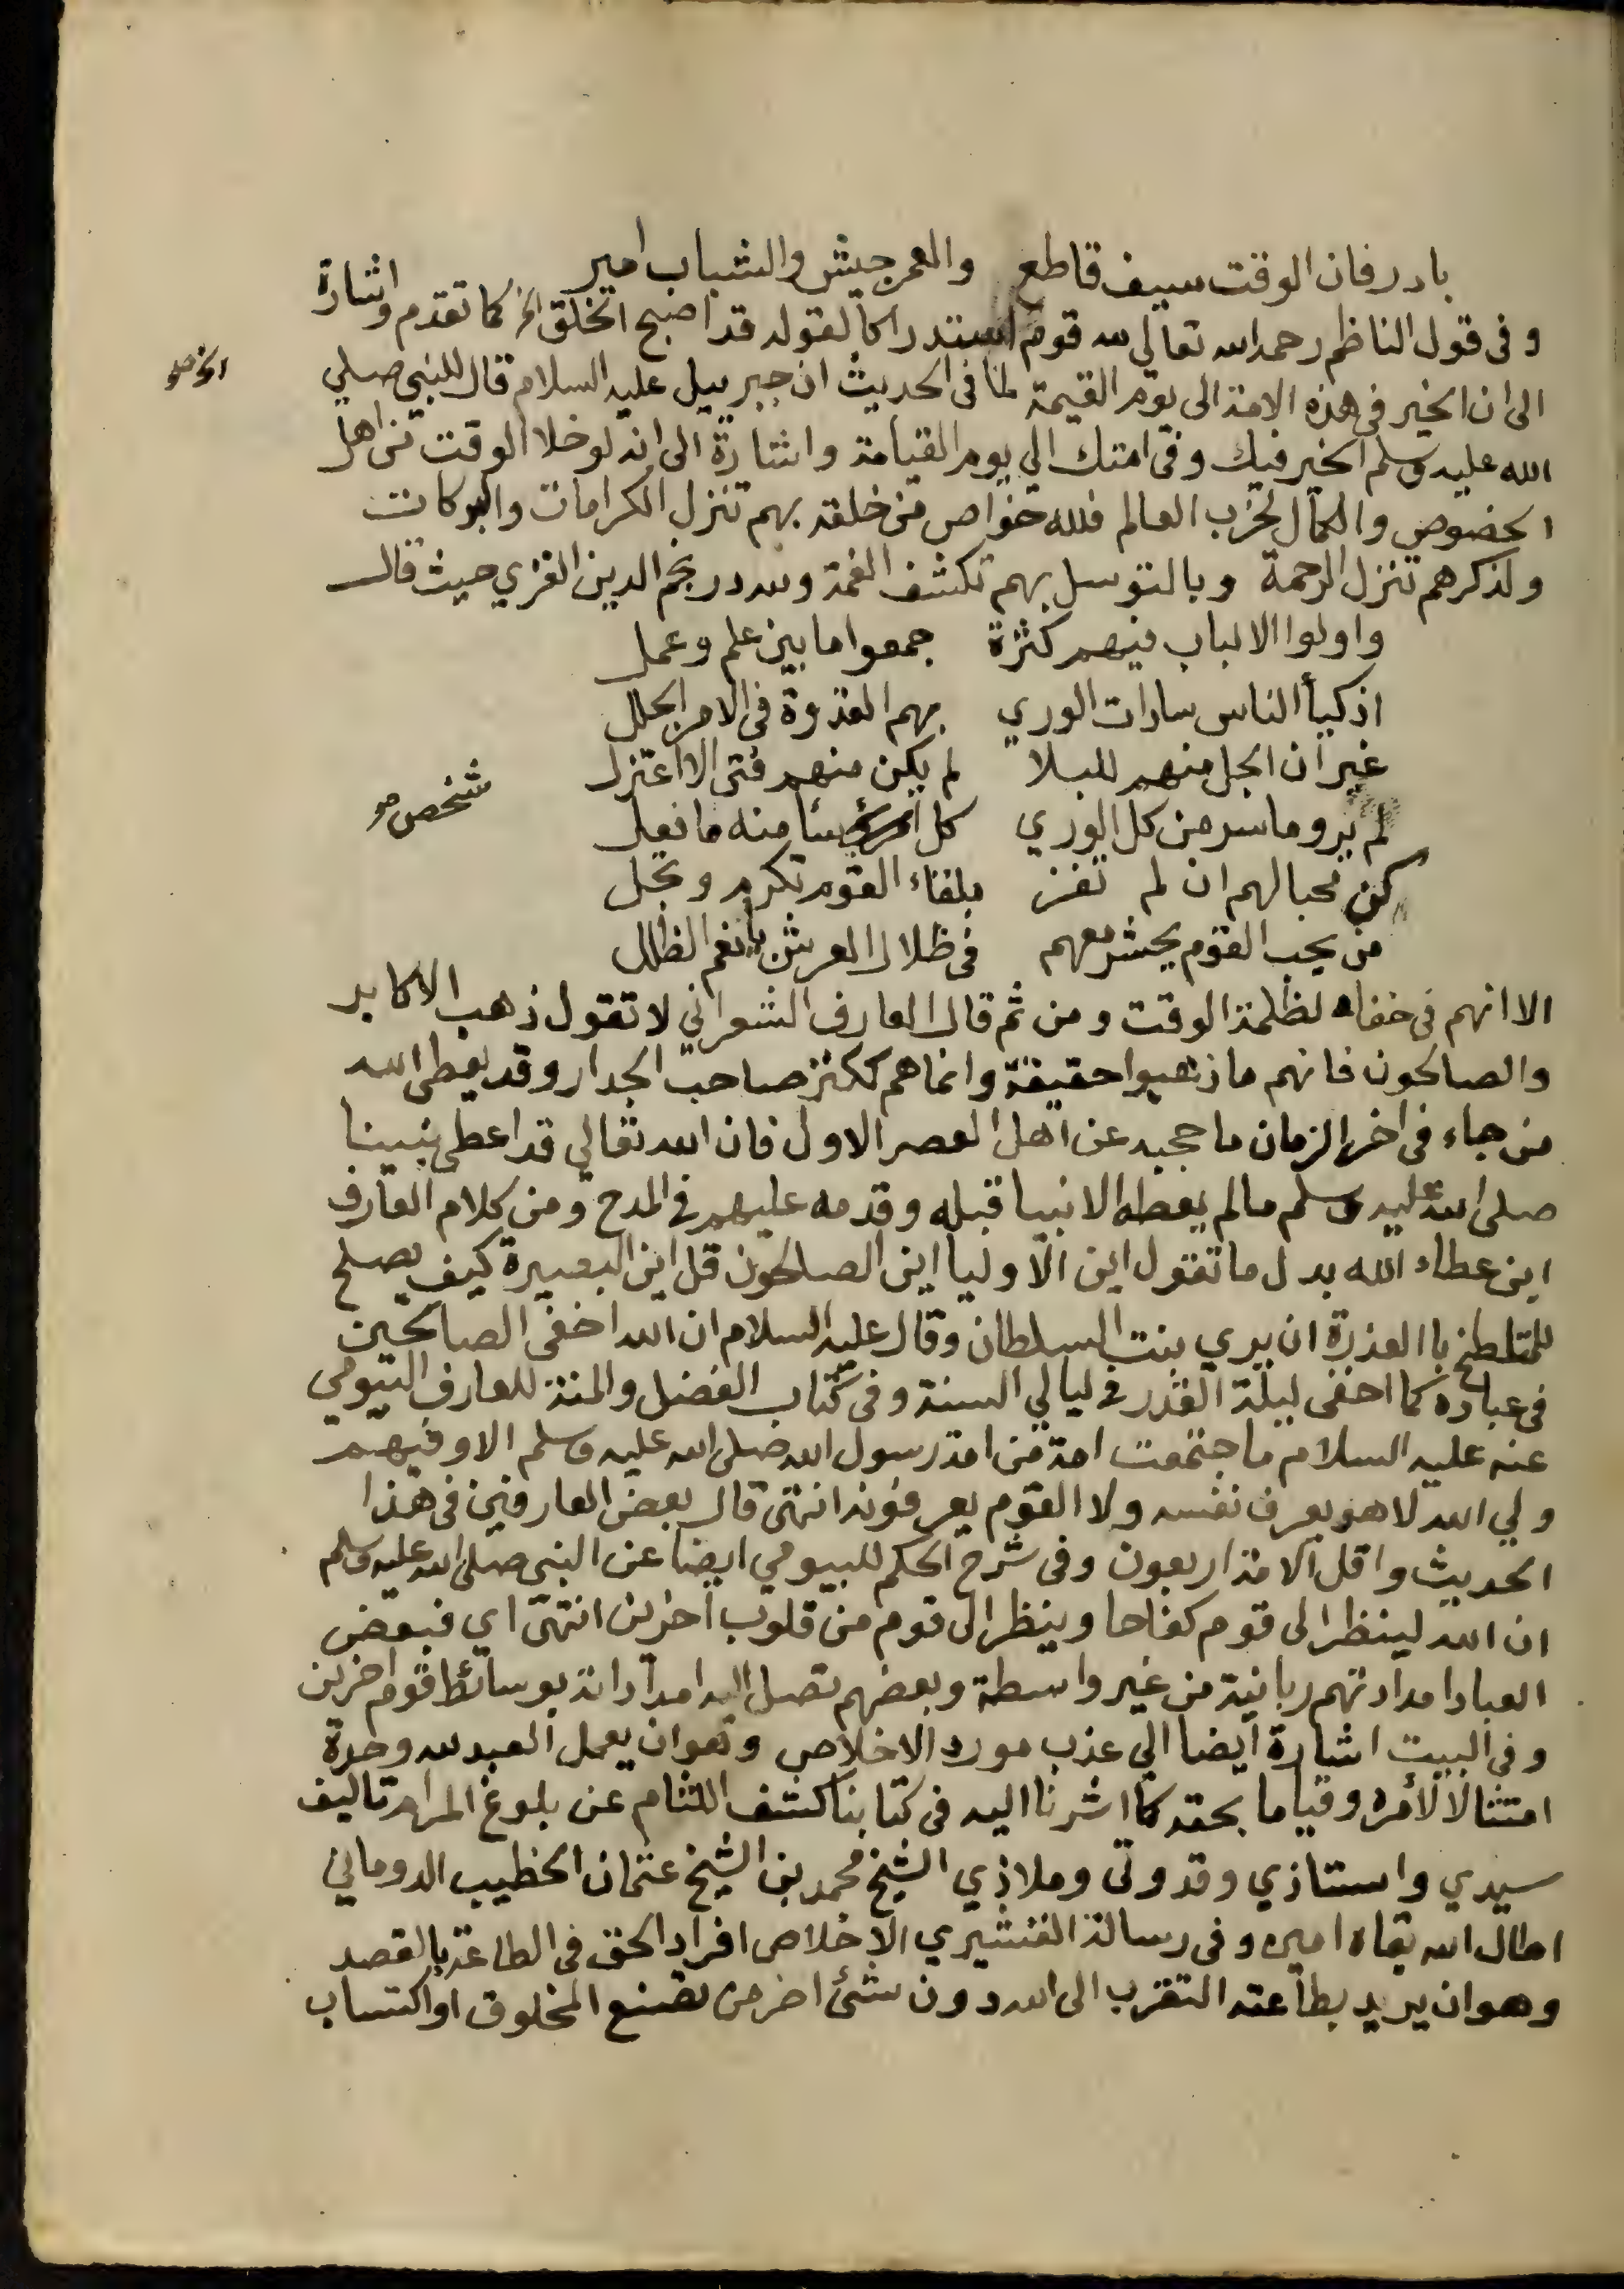 بادر فان الوقت سيف قاطع والعمر جيش والشباب امير
و فى قول الناظم رحمه الله تعالي لله قوم استدراكا لقوله قد اصبح الخلق الخ كما تقدم واشارة
الى ان الخير فى هذه الامة الى يوم القيمة لما فى الحديث ان جبرييل عليه السلام قال للنبي صلي
الله عليه وسلم الخير فيك وفى امتك الي يوم القيامة واشارة الى انه لو خلا الوقت من اهل
الخصوص والكمال لخرب العالم فلله خواص من خلقه بهم تنزل الكرامات والبركات
ولذكرهم تنزل الرحمة وبالتوسل بهم تكشف الغمة ولله در نجم الدين الغزي حيث قال
واولوا الالباب فيهم كثرة جمعوا ما بين علم وعمل
اذكيأ الناس سادات الوري بهم القدوة فى الامر الجلل
غير ان الجل منهم للبلا لم يكن منهم فتى الا اعتزل
لم يروا ما سر من كل الوري كل سئا منه ما فعل
شخص صح
كن محبا لهم ان لم تفز بلقاء القوم تكرم وتجل
من يحب القوم يحشر معهم فى ظلال العرش يا نعم الظلل
الا انهم فى خفاء لظلمة الوقت ومن ثم قال العارف الشعراني لا تقول ذهب الاكابر
والصالحون فانهم ما ذهبوا حقيقة وانما هم ككنز صاحب الجدار وقد يعطى الله
من جاء فى اخر الزمان ما حجبه عن اهل العصر الاول فان الله تعالي قد اعطى نبينا
صلى الله عليه وسلم ما لم يعطه الانبيا قبله وقدمه عليهم فى المدح ومن كلام العارف
ابن عطاء الله بدل ما تقول اين الاوليا اين الصالحون قل اين البصيرة كيف يصلح
للمتلطخ باالعذرة ان يري بنت السلطان وقال عليه السلام ان الله اخفى الصالحين
فى عباده كما اخفى ليلة القدر فى ليالي السنة وفى كتاب الفضل والمنة للعارف البيومي
عنه عليه السلام ما جتمعت امة من امة رسول الله صلى الله عليه وسلم الا وفيهم
ولي الله لا هو يعرف نفسه ولا القوم يعرفونه انتهى قال بعض العارفين فى هذا
الحديث واقل الامة اربعون وفى شرح الحكم للبيومي ايضا عن النبي صلى الله عليه وسلم
ان الله لينظر الى قوم كفاحا وينظر الى قوم من قلوب اخرين انتهى اي فبعض
العباد امداداتهم ربانية من غير واسطة وبعضهم تصل اليه امداداته بوسائط قوم اخرين
وفى البيت اشارة ايضا الي عذب مورد الاخلاص وهو ان يعمل العبد لله وحده
امتثالا لأمره وقياما بحقه كما اشرنا اليه فى كتابنا كشف اللثام عن بلوغ المرام تاليف
سيدي واستاذي وقدوتى وملاذي الشيخ محمد بن الشيخ عثمان الخطيب الدوماني
اطال الله بقاه امين وفى رسالة القشيري الاخلاص افراد الحق فى الطاعة بالقصد
وهو ان يريد بطاعته التقرب الى الله دون شئ اخر من تصنع المخلوق او اكتساب